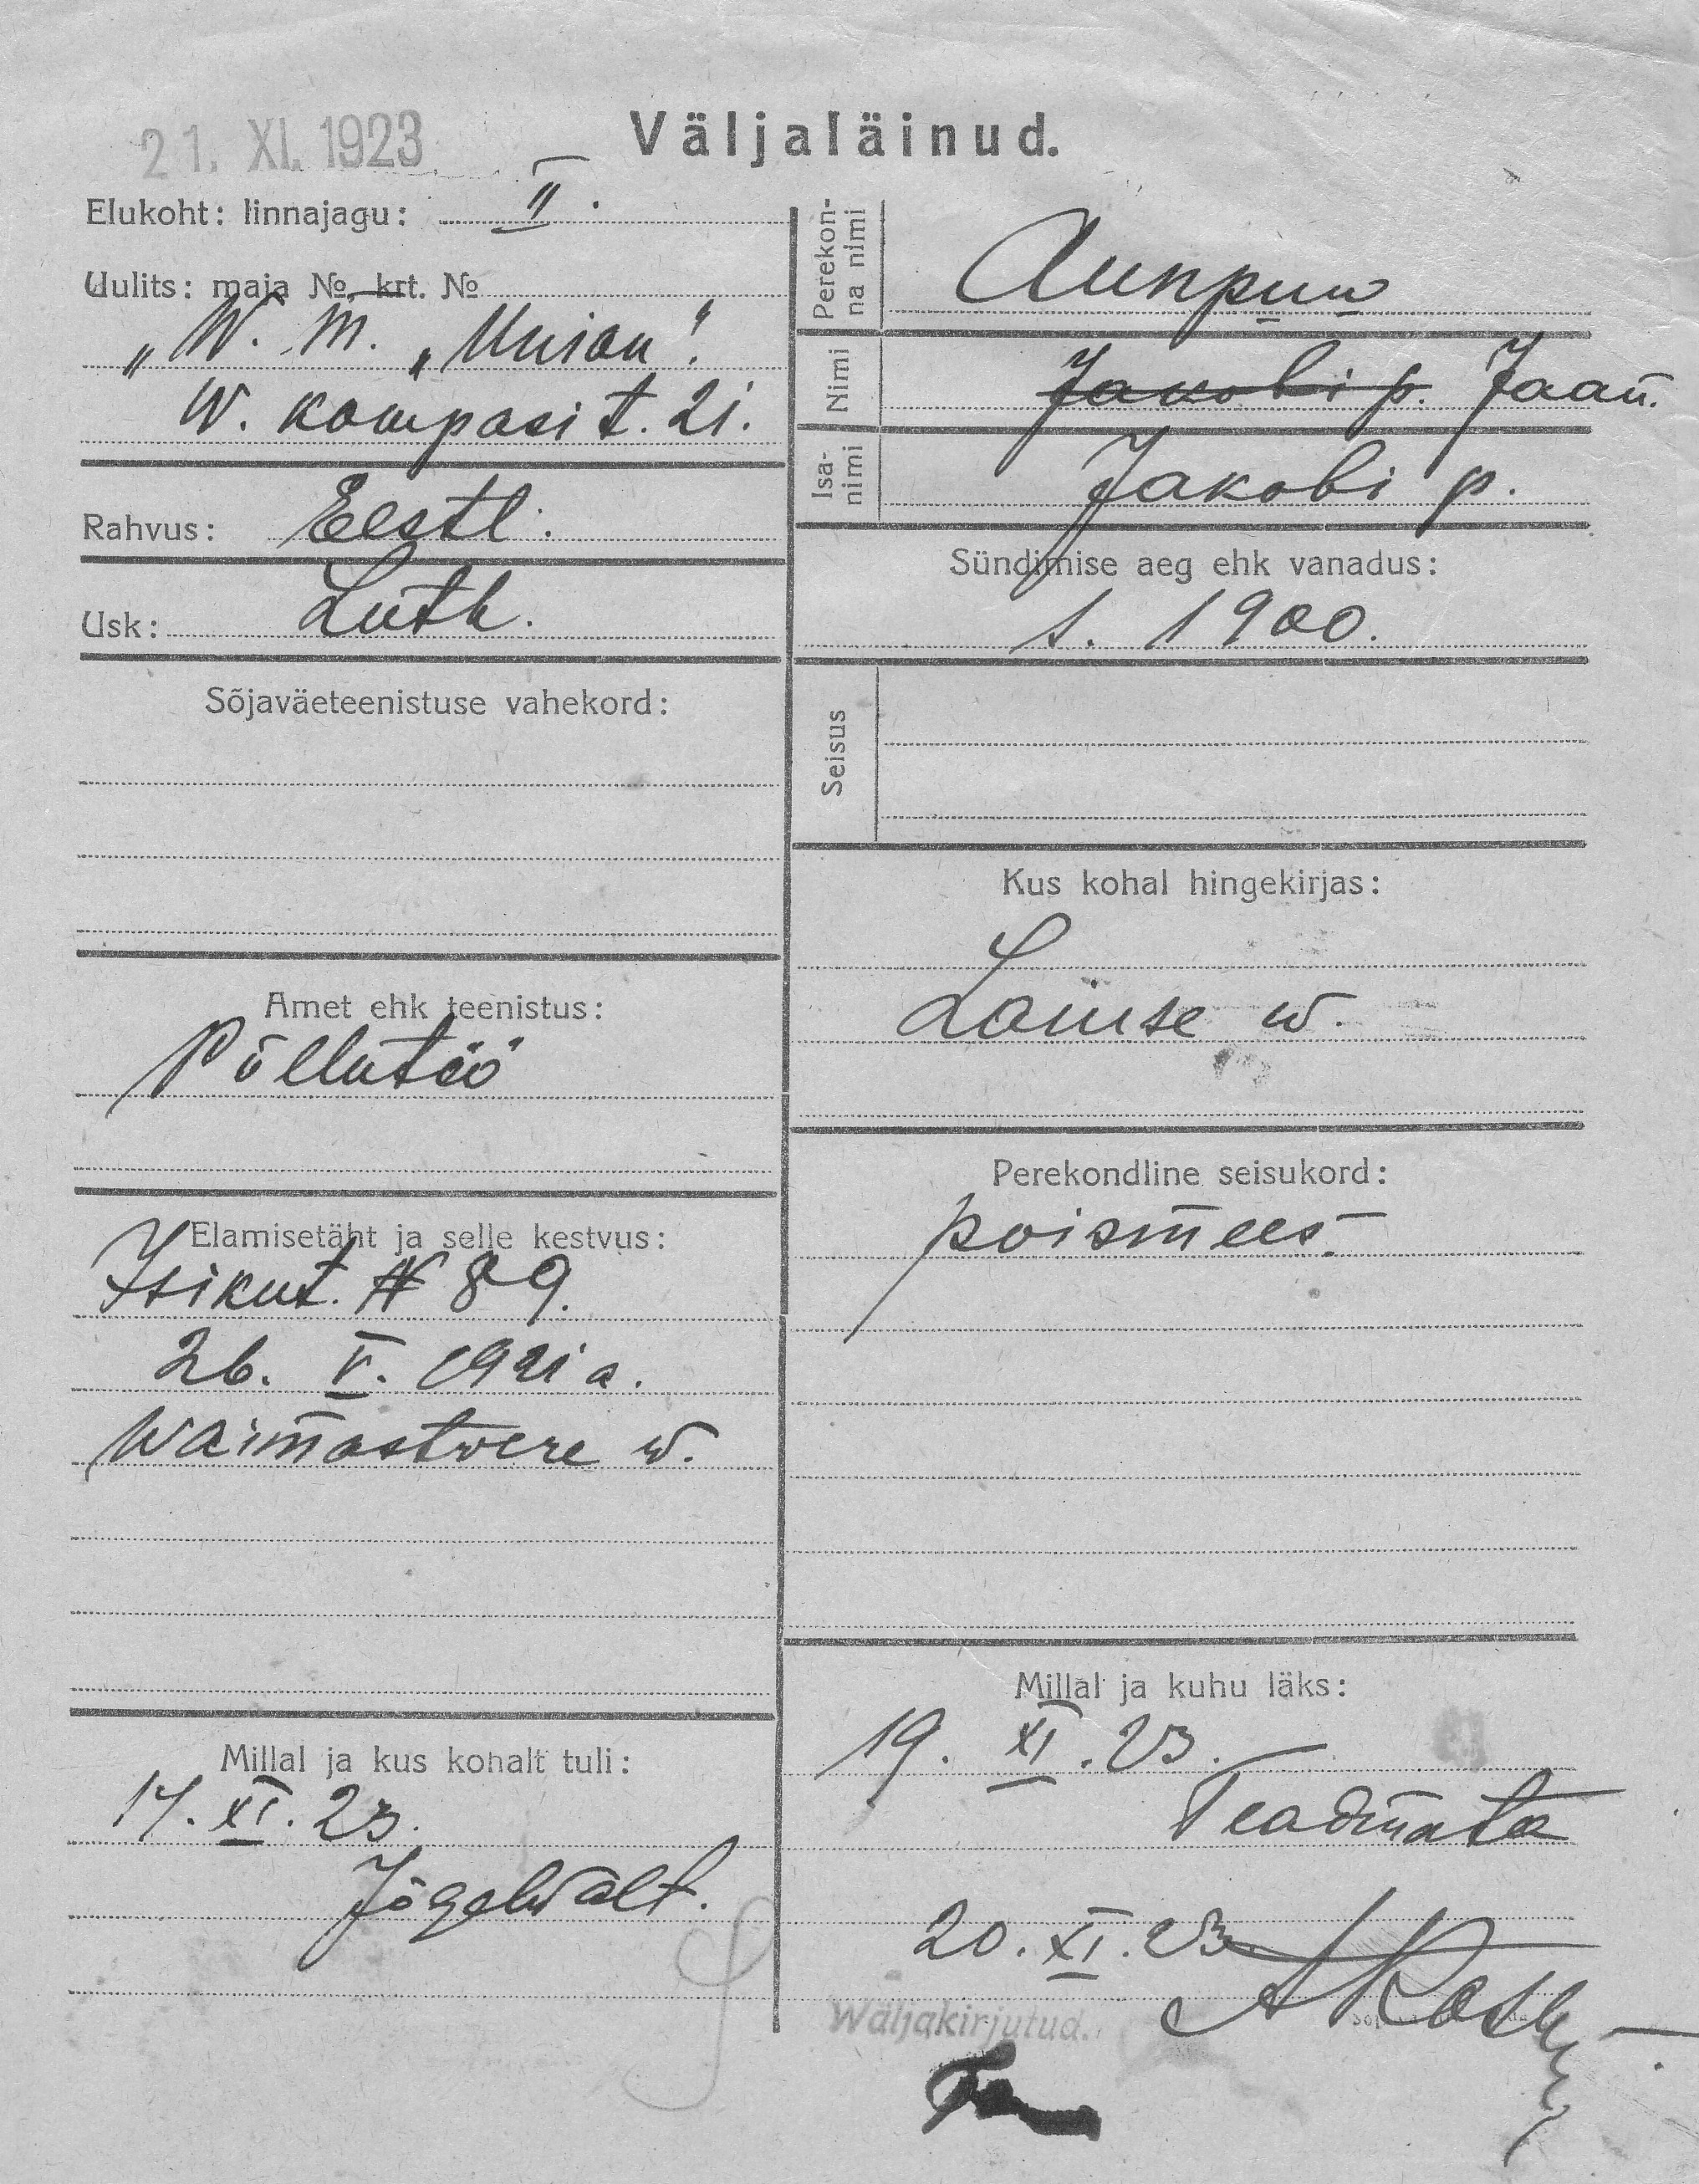 21. XI. 1923
Väljaläinud.
Elukoht: linnajagu: II.
Uulits: maja № krt. №
„W. M. „Union".
W. kompasi t. 21.
Rahvus: Eestl.
Usk: Luth.
Sõjaväeteenistuse vahekord:
Amet ehk teenistus:
Põllutöö
Elamisetäht ja selle kestvus:
Isikut. № 89.
26. V. 1921 a.
Waimastwere w.
Millal ja kus kohalt tuli:
17. XI. 23.
Jõgewalt.
Perekonna nimi
Aunpuu
Nimi
Jakobi p. Jaan.
Isanimi
Jakobi p.
Sündimise aeg ehk vanadus:
s. 1900.
Seisus
Kus kohal hingekirjas:
Laiuse w.
Perekondline seisukord:
poismees.
Millal ja kuhu läks:
19. XI. 23.
Teadmata
20. XI. 23
Wäljakirjutud.